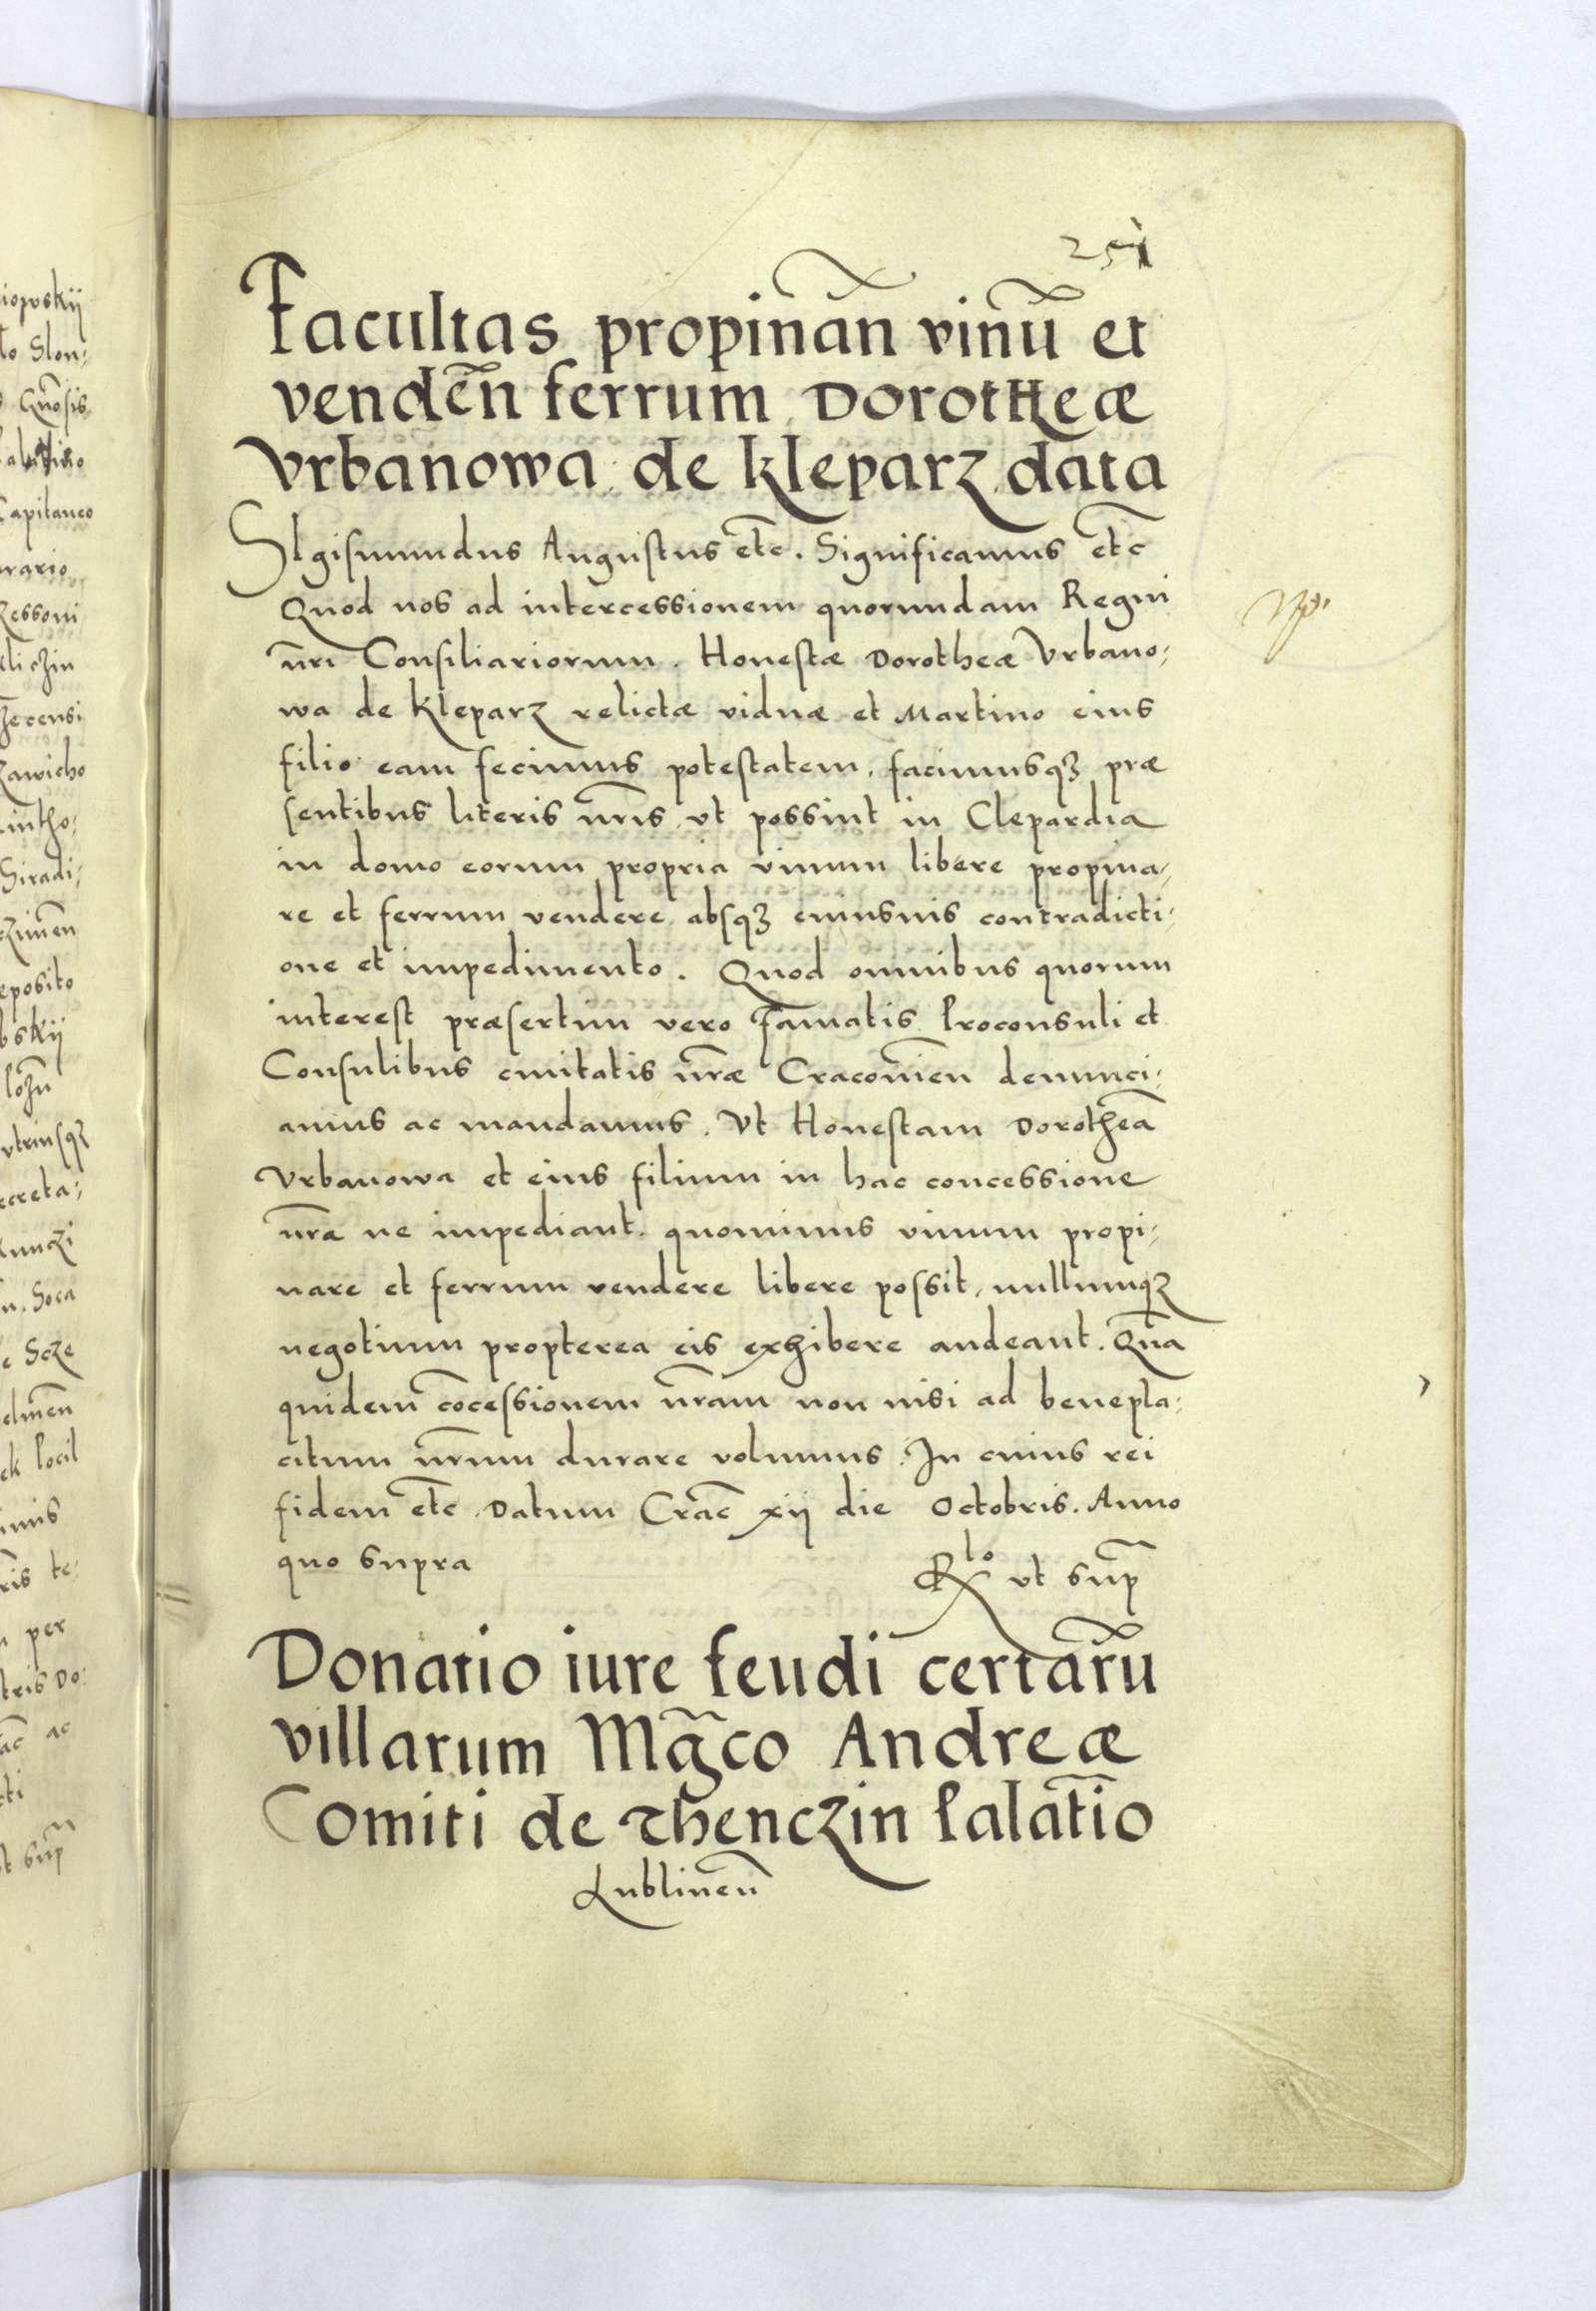 251
Facultas propinãn vinũ et
vendẽn ferrum Dorotheæ
Vrbanowa de Kleparz data
SIgismundus Augustus etc̃. Significamus etc̃
Quod nos ad intercessionem quorundam Regni
nr̃i Consiliariorum. Honestæ Dorotheæ Vrbano:
wa de Kleparz relictæ viduæ et Martino eius
filio eam fecimus potestatem, facimusqꝫ præ
sentibus literis nr̃is, vt possint in Clepardia
in domo eorum propria vinum libere propina:
re et ferrum vendere absqꝫ cuiusuis contradicti:
one et impedimento. Quod omnibus quorum
interest præsertim vero Famatis Proconsuli et
Consulibus ciuitatis nr̃æ Cracouien̄ denunci:
amus ac mandamus. Vt Honestam Dorotheã
Vrbanowa et eius filium in hac concessione
nr̃a ne impediant. quominus vinum propi:
nare et ferrum vendere libere possit, nullumqꝫ
negotium propterea eis exhibere audeant. Qũa
quidem cõcessionem nr̃am non nisi ad benepla:
citum nr̃um durare volumus. In cuius rei
fidem etc̃. Datum Crac̃ xij die Octobris. Anno
quo supra
Rlo vt sup̃
Donatio iure feudi certarũ
villarum Mg̃co Andreæ
Comiti de Thenczin Palatĩo
Lublineñ